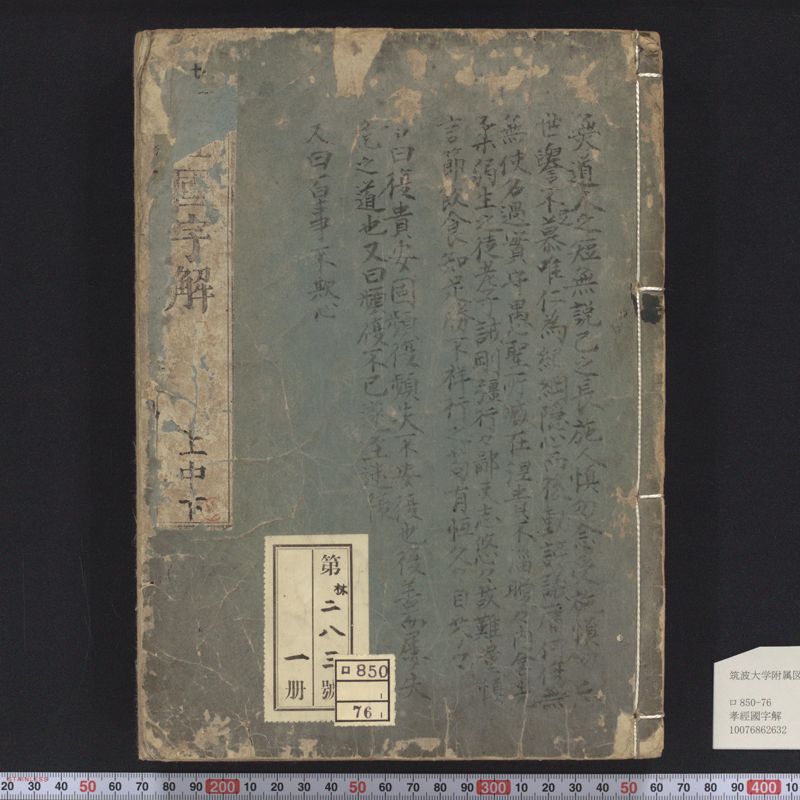 無道人之短無説己之長施人慎勿念受施慎勿忘
世譽不足慕唯仁為紀綱隱心而後動謗議庸何傷無
無使名過實守愚聖所臧在涅貴不淄曖々内含光
柔弱生之徒老子誡剛彊行々鄙夫志悠々故難量慎
言節飲食知足勝不祥行之苟有恒久々自
曰復貴安固頻復頻失不安復也復善而屢失
危之道也又曰頻復不已遂至迷復
又曰百事不欺心
國字解
上中下
第林二八三號
一册
ロ850
1
76
1
筑波大学附属図
ロ850-76
孝經國字解
10076862632
STAINLESS
20 30 40 50 60 70 80 90 200 10 20 30 40 50 60 70 80 90 300 10 20 30 40 50 60 70 80 90 400 10